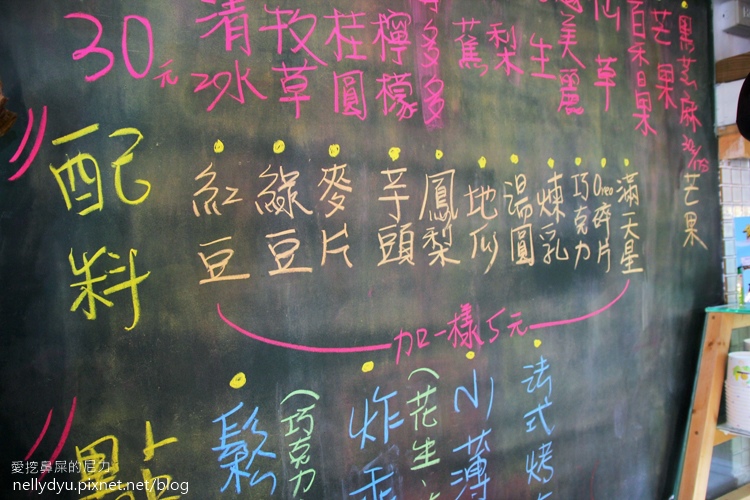 30元
清水20
牧草
桂圓
檸檬
多多
蕉
梨
生
美麗
仙草
百香果
芒果
黑芝麻
芒果
配料
紅豆
綠豆
麥片
芋頭
鳳梨
地瓜
湯圓
煉乳
巧克力
Oreo碎片
滿天星
加一樣5元
點
鬆
(巧克力
炸
(花生
薄
法式烤
愛挖鼻屎的尼力
nellydyu.pixnet.net/blog